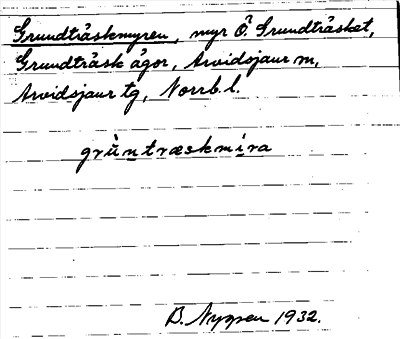 Grundträskmyren, myr Ö. Grundträsket,
Grundträsk ägor, Arvidsjaur m,
Arvidsjaur tg, Norrb. l.
grùntræskmíra
B. Nygren 1932.